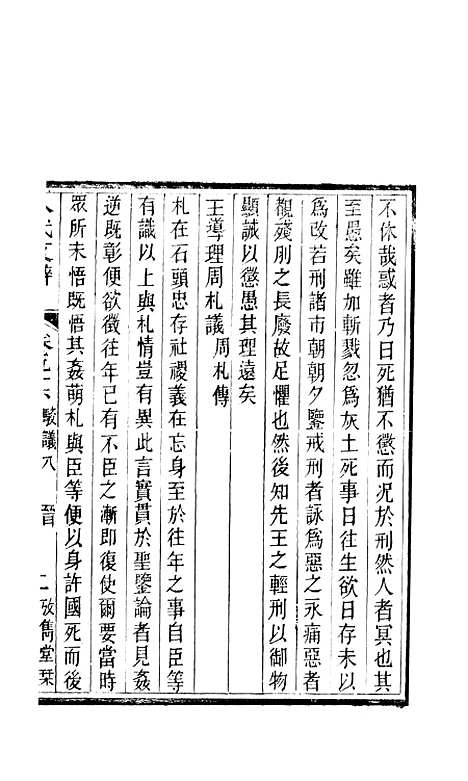 不休哉惑者乃曰死猶不懲而况於刑然人者冥也其
至愚矣雖加斬戮忽爲灰土死事日往生欲日存未以
爲改若刑諸市朝朝夕鑒戒刑者詠爲惡之永痛惡者
覩殘刖之長廢故足懼也然後知先王之輕刑以御物
顯誡以懲愚其理遠矣
王導理周札議 周札傳
札在石頭忠存社稷義在忘身至於往年之事自臣等
有識以上與札情豈有異此言實貫於聖鑒論者見姦
逆既彰便欲徵往年已有不臣之漸即復使爾要當時
眾所未悟既悟其姦萌札與臣等便以身許國死而後
駮議八 晉 二 敚雋堂栞